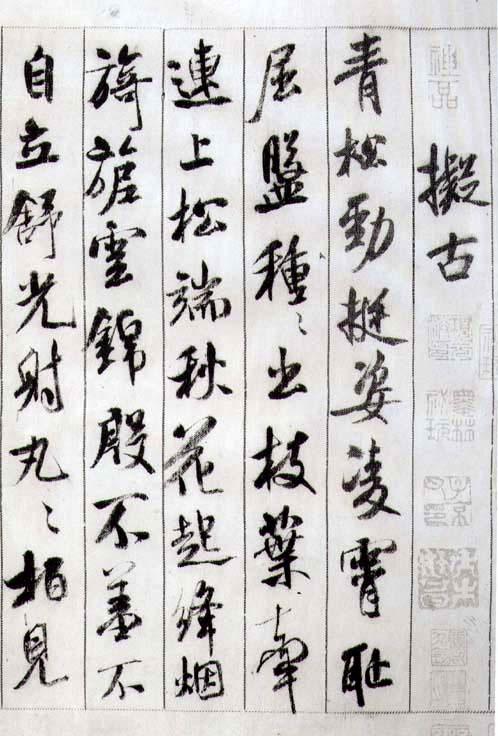 擬古
青松勁挺姿凌霄恥
屈盤種々出枝葉牽
連上松端秋花起絳烟
旖旎雲錦殷不羞不
自立舒光射丸々柏見